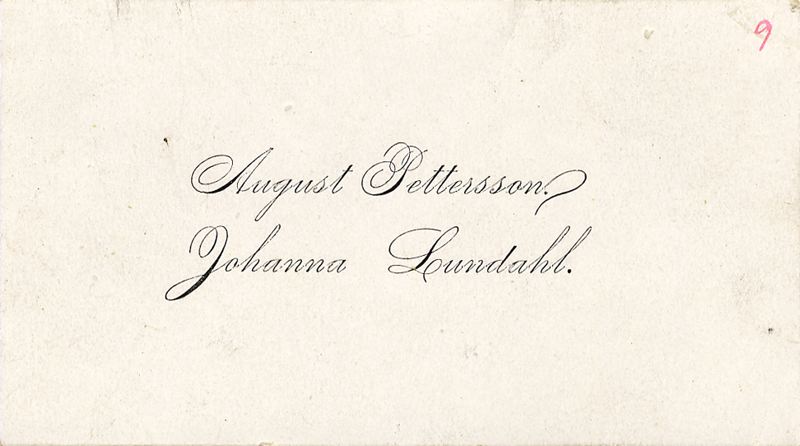 9
August Pettersson.
Johanna Lundahl.